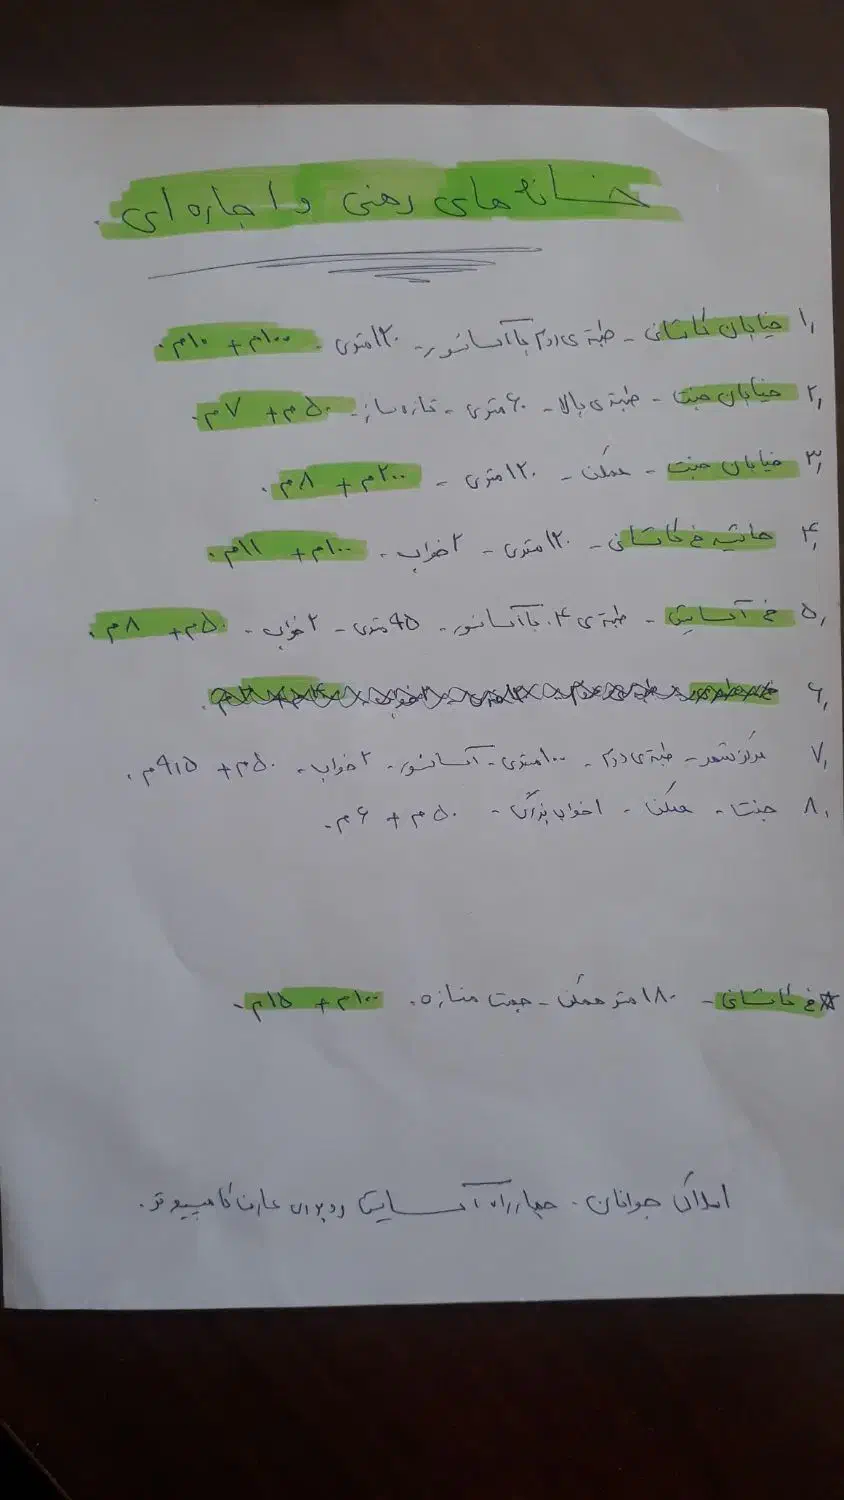 خانه های رهنی و اجاره ای.
۱, خیابان کاشانی - طبقه ی دوم با آسانسور - ۱۲۰ متری. ۱۰۰م + ۱۰م.
۲, خیابان جنت - طبقه ی بالا - ۶۰ متری - تازه ساز - ۵۰م + ۷م.
۳, خیابان جنت - همکف - ۱۲۰ متری - ۲۰۰م + ۸م.
۴, حاشیه خ کاشانی - ۱۲۰ متری - ۲ خواب - ۱۰۰م + ۱۱م.
۵, خ آسایش - طبقه ی ۴. با آسانسور - ۹۵ متری - ۲ خواب - ۵۰م + ۸م.
۶,
۷, مرکز شهر - طبقه ی دوم - ۱۰۰ متری - آسانسور - ۲ خواب - ۵۰م + ۹,۵م.
۸, جنت - همکف - ۱ خواب بزرگ - ۵۰م + ۶م.
* خ کاشانی - ۱۸۰ متر همکف - جهت مغازه. ۱۰۰م + ۱۵م.
املاک جوانان. چهارراه آسایش روبروی عارف کامپیوتر.